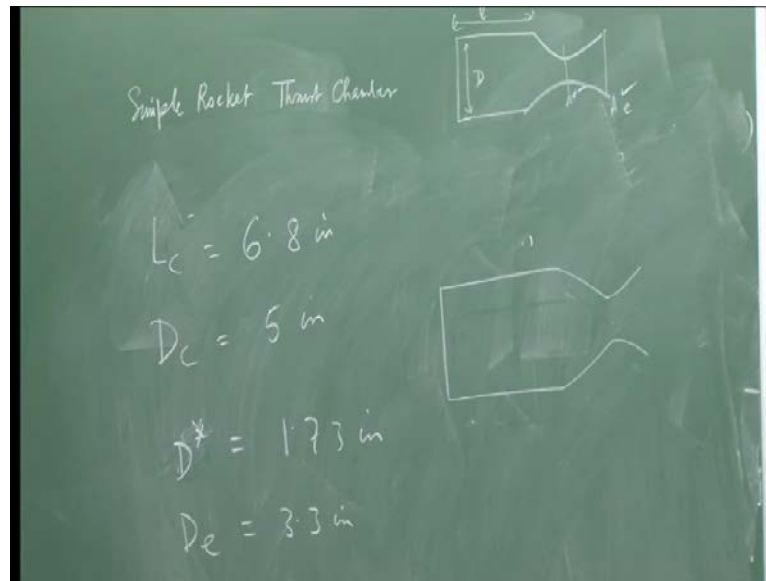 Simple Rocket Thrust Chamber
l
D
A*
Ae
Lc = 6.8 in
Dc = 5 in
D* = 1.73 in
De = 3.3 in